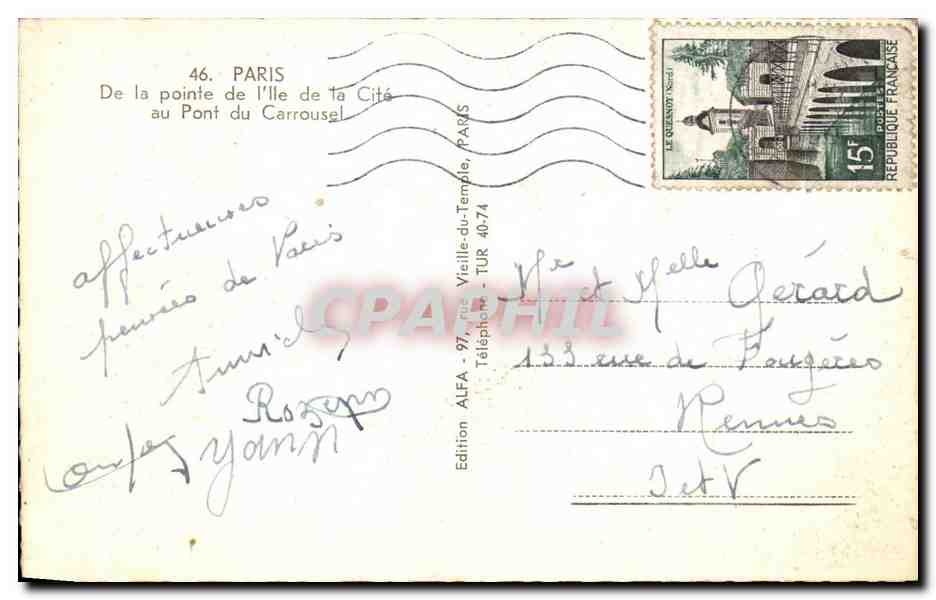 46. PARIS
De la pointe de l'Ile de la Cité
au Pont du Carrousel
LE QUESNOY (Nord)
15F
POSTES
REPUBLIQUE FRANÇAISE
affectueuses
pensées de Paris
Rozenn
Yann
Edition ALFA - 97, rue Vieille-du-Temple, PARIS
Téléphone - TUR 40-74
Mr et Melle Gérard
133 rue de Fougères
Rennes
I et V
CPAPHIL